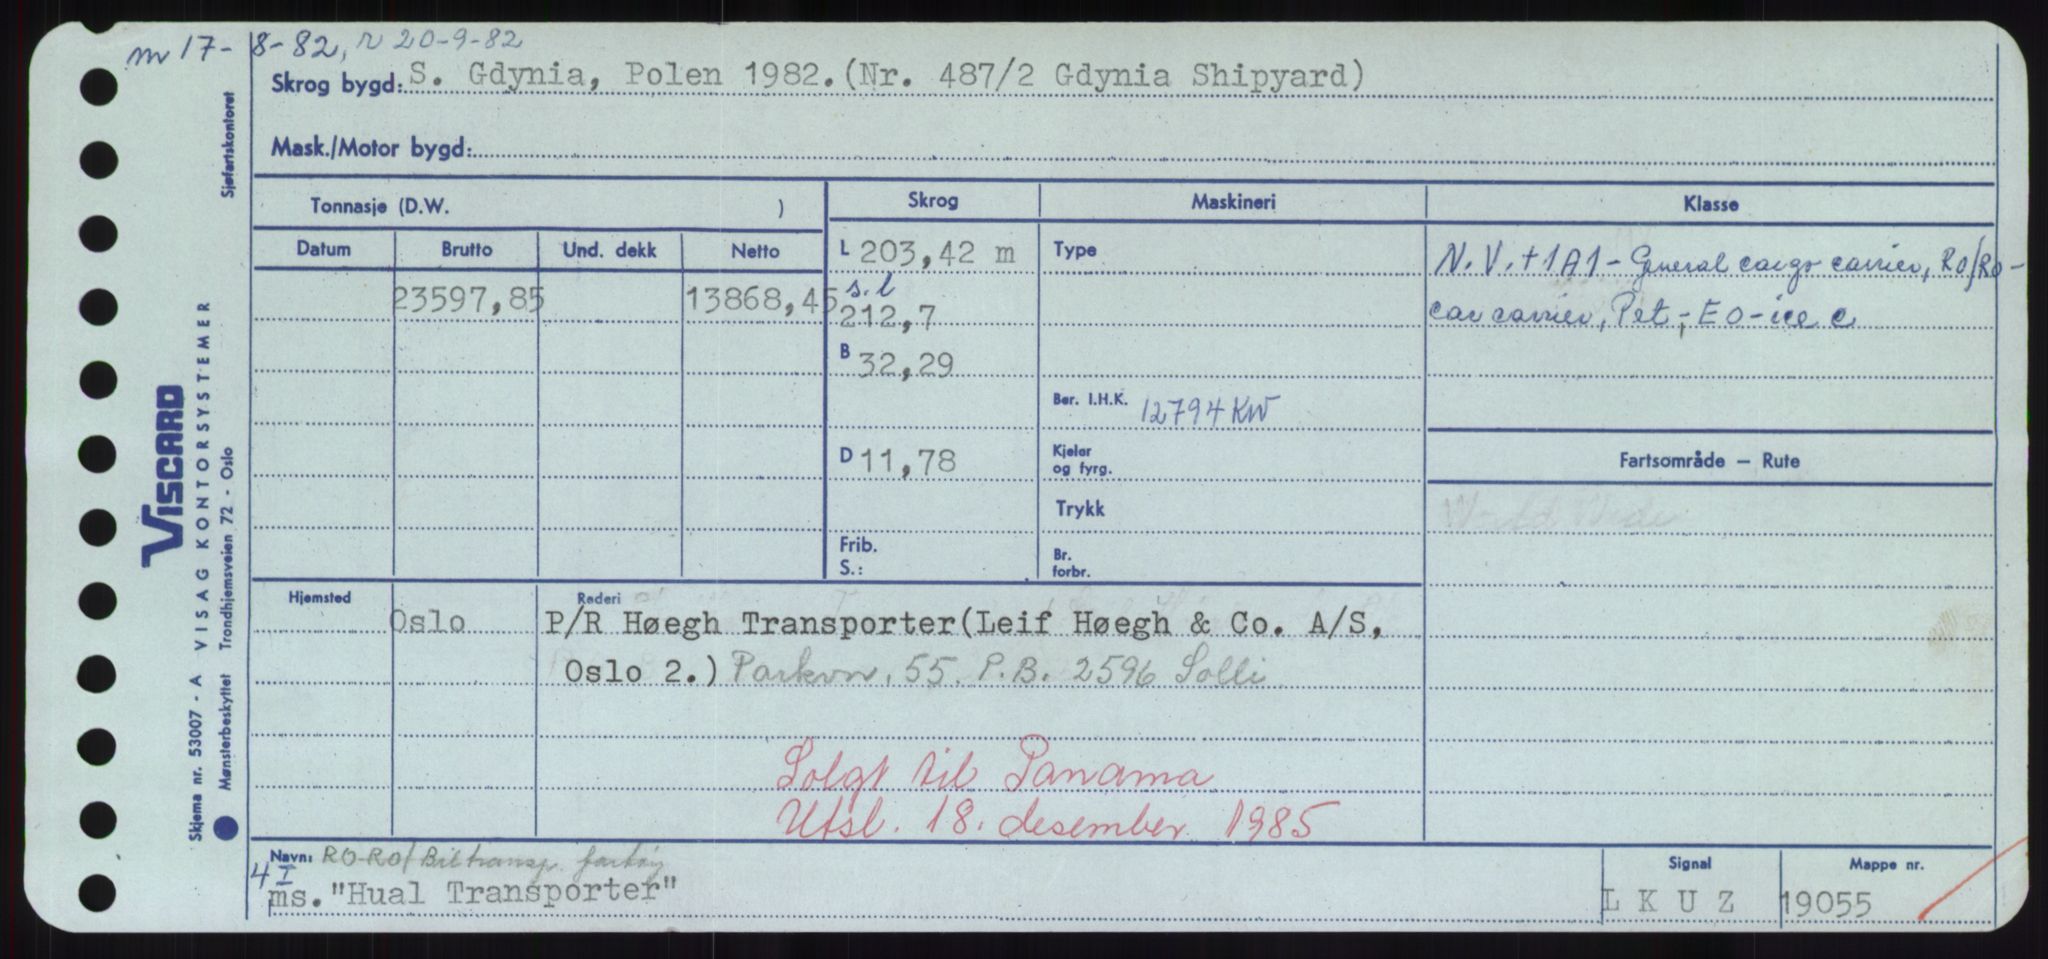 m 17-8-82, r 20-9-82
Skrog bygd: S. Gdynia, Polen 1982.(Nr. 487/2 Gdynia Shipyard)
Mask./Motor bygd:
Tonnasje (D.W. )
Skrog
Maskineri
Klasse
Datum Brutto Und. dekk Netto
23597,85 13868,45
L 203,42 m
s.l
212,7
B 32,29
D 11,78
Frib.
S.:
Type
Ber. I.H.K. 12794 KW
Kjeler
og fyrg.
Trykk
Br.
forbr.
N.V.+1A1- General cargo carrier, RO/RO-
car carrier, Pet-, EO-ice c
Fartsområde — Rute
World Wide
Hjemsted Oslo
Rederi
P/R Høegh Transporter(Leif Høegh & Co. A/S,
Oslo 2.) Parkvn. 55. P.B. 2596 Solli
Solgt til Panama
Utsl. 18. desember 1985
Navn: RO-RO/Biltransp. fartøy
4 I
ms. "Hual Transporter"
Signal
L K U Z
Mappe nr.
19055
Skjema nr. 53007 - A VISAG KONTORSYSTEMER
Mønsterbeskyttet Trondhjemsveien 72 - Oslo
Sjøfartskontoret
VISCARD